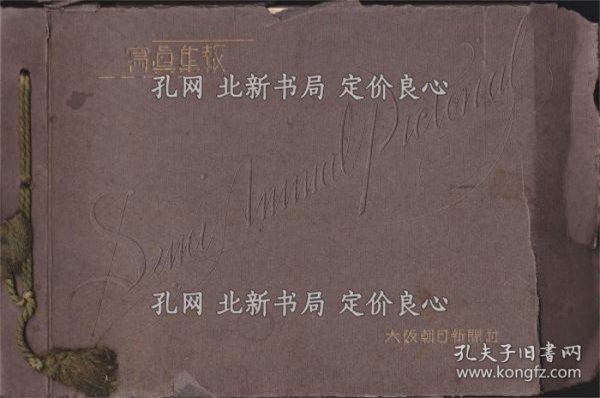 寫眞年報
孔网 北新书局 定价良心
Semi Annual Pictorial
孔网 北新书局 定价良心
大阪朝日新聞社
孔夫子旧書网
www.kongfz.com